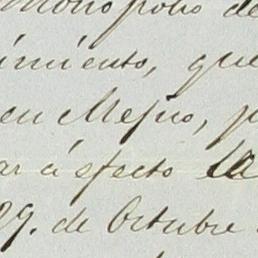 Monopolio de
imiento, que
en Mejico,
ar á efecto la
29. de Octubre